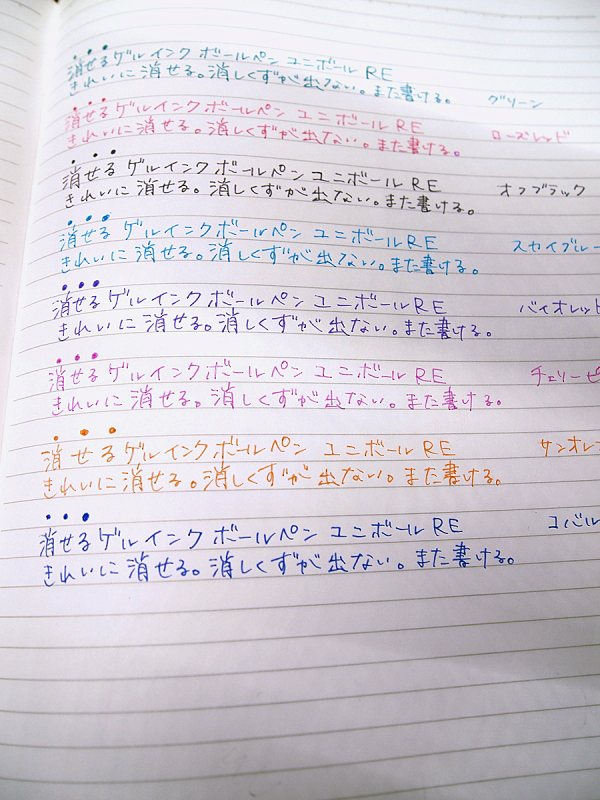 消せるゲルインクボールペン ユニボール RE
きれいに消せる。消しくずが出ない。また書ける。 グリーン
消せるゲルインクボールペン ユニボール RE
きれいに消せる。消しくずが出ない。また書ける。 ローズレッド
消せるゲルインクボールペン ユニボール RE オフブラック
きれいに消せる。消しくずが出ない。また書ける。
消せるゲルインクボールペン ユニボール RE スカイブルー
きれいに消せる。消しくずが出ない。また書ける。
消せるゲルインクボールペン ユニボール RE バイオレット
きれいに消せる。消しくずが出ない。また書ける。
消せるゲルインクボールペン ユニボール RE チェリーピ
きれいに消せる。消しくずが出ない。また書ける。
消せるゲルインクボールペン ユニボール RE サンオレ
きれいに消せる。消しくずが出ない。また書ける。
消せるゲルインクボールペン ユニボール RE コバル
きれいに消せる。消しくずが出ない。また書ける。